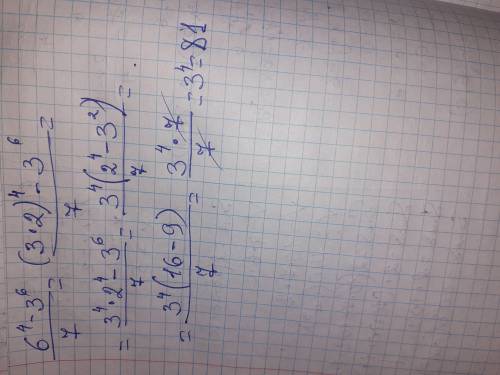 (6⁴-3⁶)/7 = ((3·2)⁴-3⁶)/7 =
= (3⁴·2⁴-3⁶)/7 = (3⁴(2⁴-3²))/7 =
= (3⁴(16-9))/7 = (3⁴·7)/7 = 3⁴ = 81